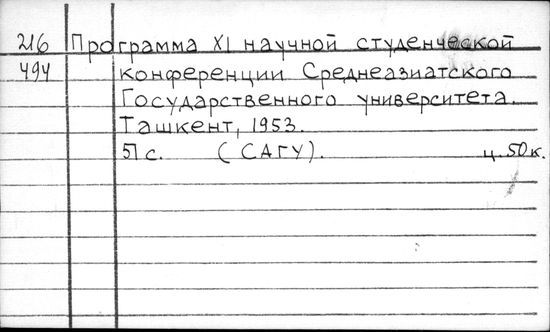 216 Программа XI научной студенческой
494 конференции Среднеазиатского
Государственного университета.
Ташкент, 1953.
51 с. (САГУ). ц. 50 к.